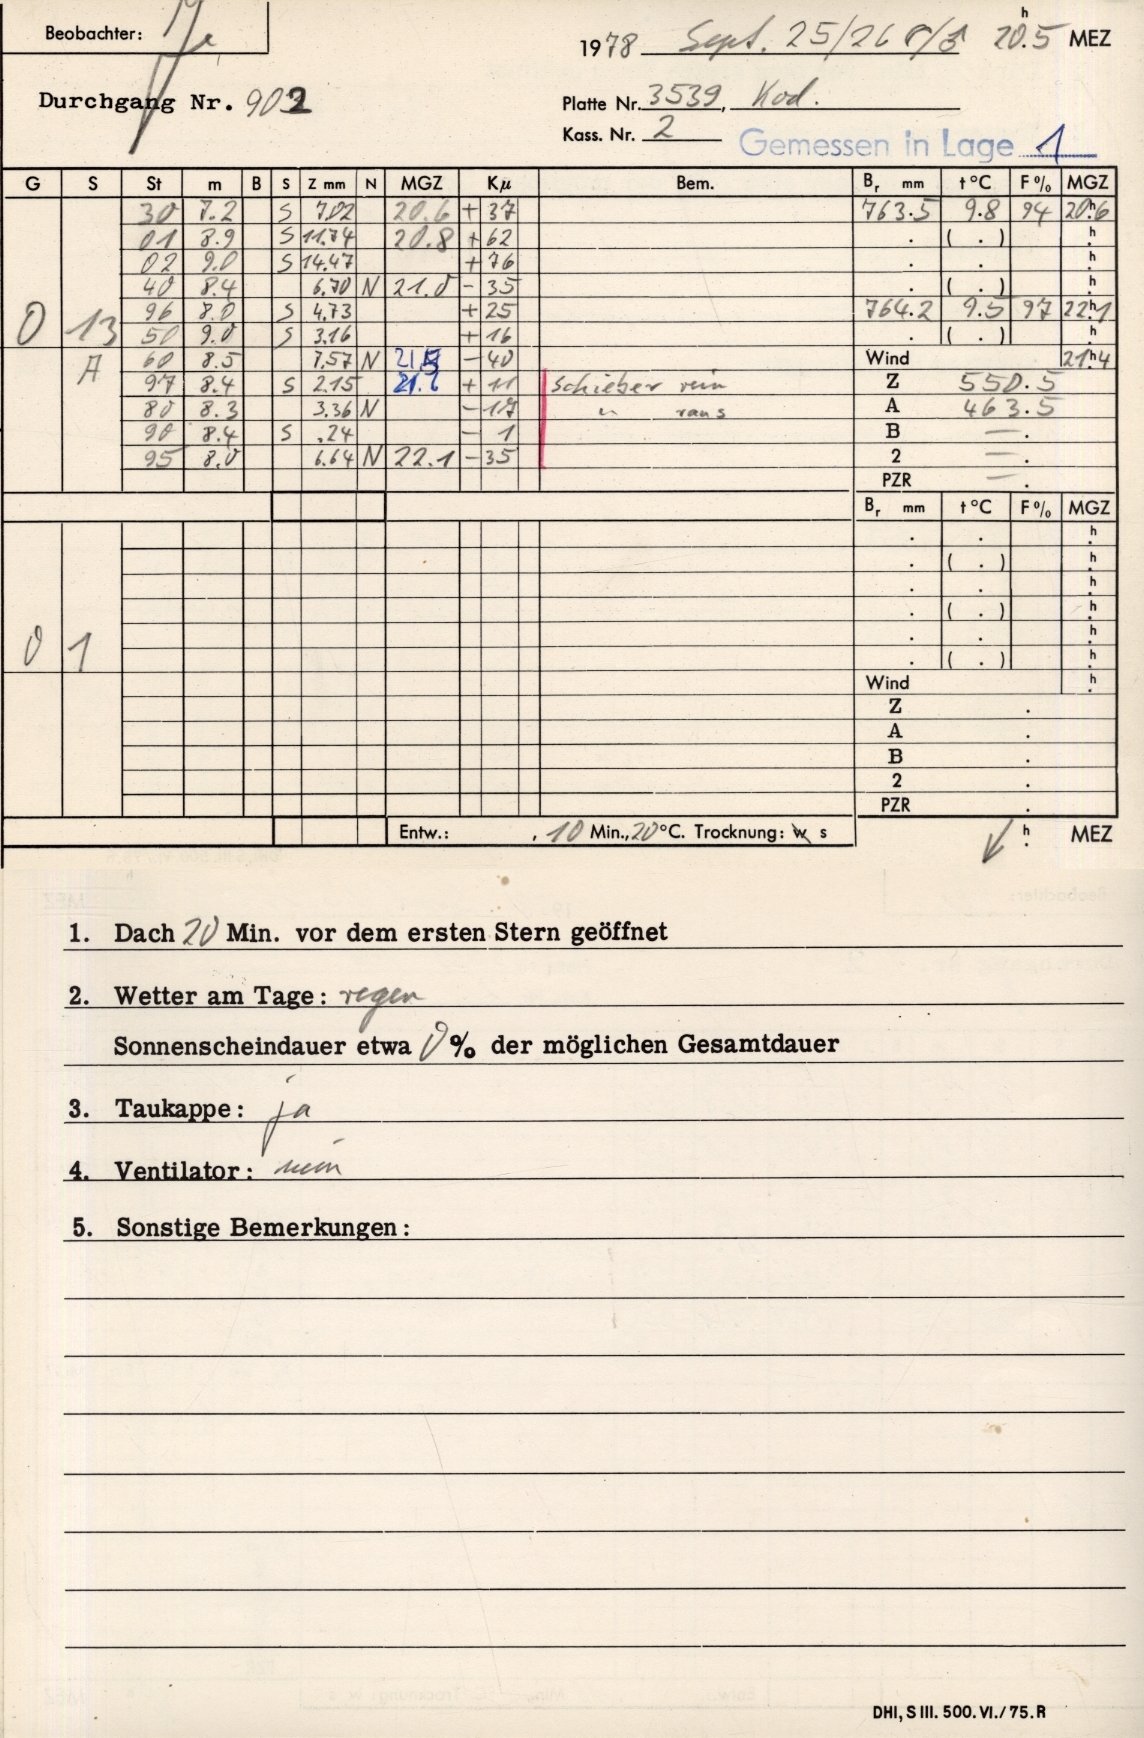 Beobachter:
1978 Sept. 25/26 20h.5 MEZ
Durchgang Nr. 902
Platte Nr. 3539, Kod.
Kass. Nr. 2 Gemessen in Lage 1
G S St m B S Z mm N MGZ Kμ Bem. Br mm t°C F% MGZ
30 7.2 S 7.02 20.6 +37 763.5 9.8 94 20h.6
01 8.9 S 11.74 20.8 +62 . ( . ) h.
02 9.0 S 14.47 +76 . . h.
40 8.4 6.70 N 21.0 -35 . ( . ) h.
0 13 96 8.0 S 4.73 +25 764.2 9.5 97 22h.1
50 9.0 S 3.16 +16 . ( . ) h.
A 60 8.5 7.57 N -40 Wind 21h.4
97 8.4 S 2.15 21.6 +11 Schieber rein Z 550.5
80 8.3 3.36 N -17 " raus A 463.5
90 8.4 S .24 - 1 B — .
95 8.0 6.64 N 22.1 -35 2 — .
PZR — .
Br mm t°C F% MGZ
. . h.
. ( . ) h.
. . h.
. ( . ) h.
0 1 . . h.
. ( . ) h.
Wind h.
Z .
A .
B .
2 .
PZR .
Entw.: , 10 Min., 20°C. Trocknung: w s h. MEZ
1. Dach 20 Min. vor dem ersten Stern geöffnet
2. Wetter am Tage: regen
Sonnenscheindauer etwa 0% der möglichen Gesamtdauer
3. Taukappe: ja
4. Ventilator: nein
5. Sonstige Bemerkungen:
DHI, S III. 500. VI./75. R